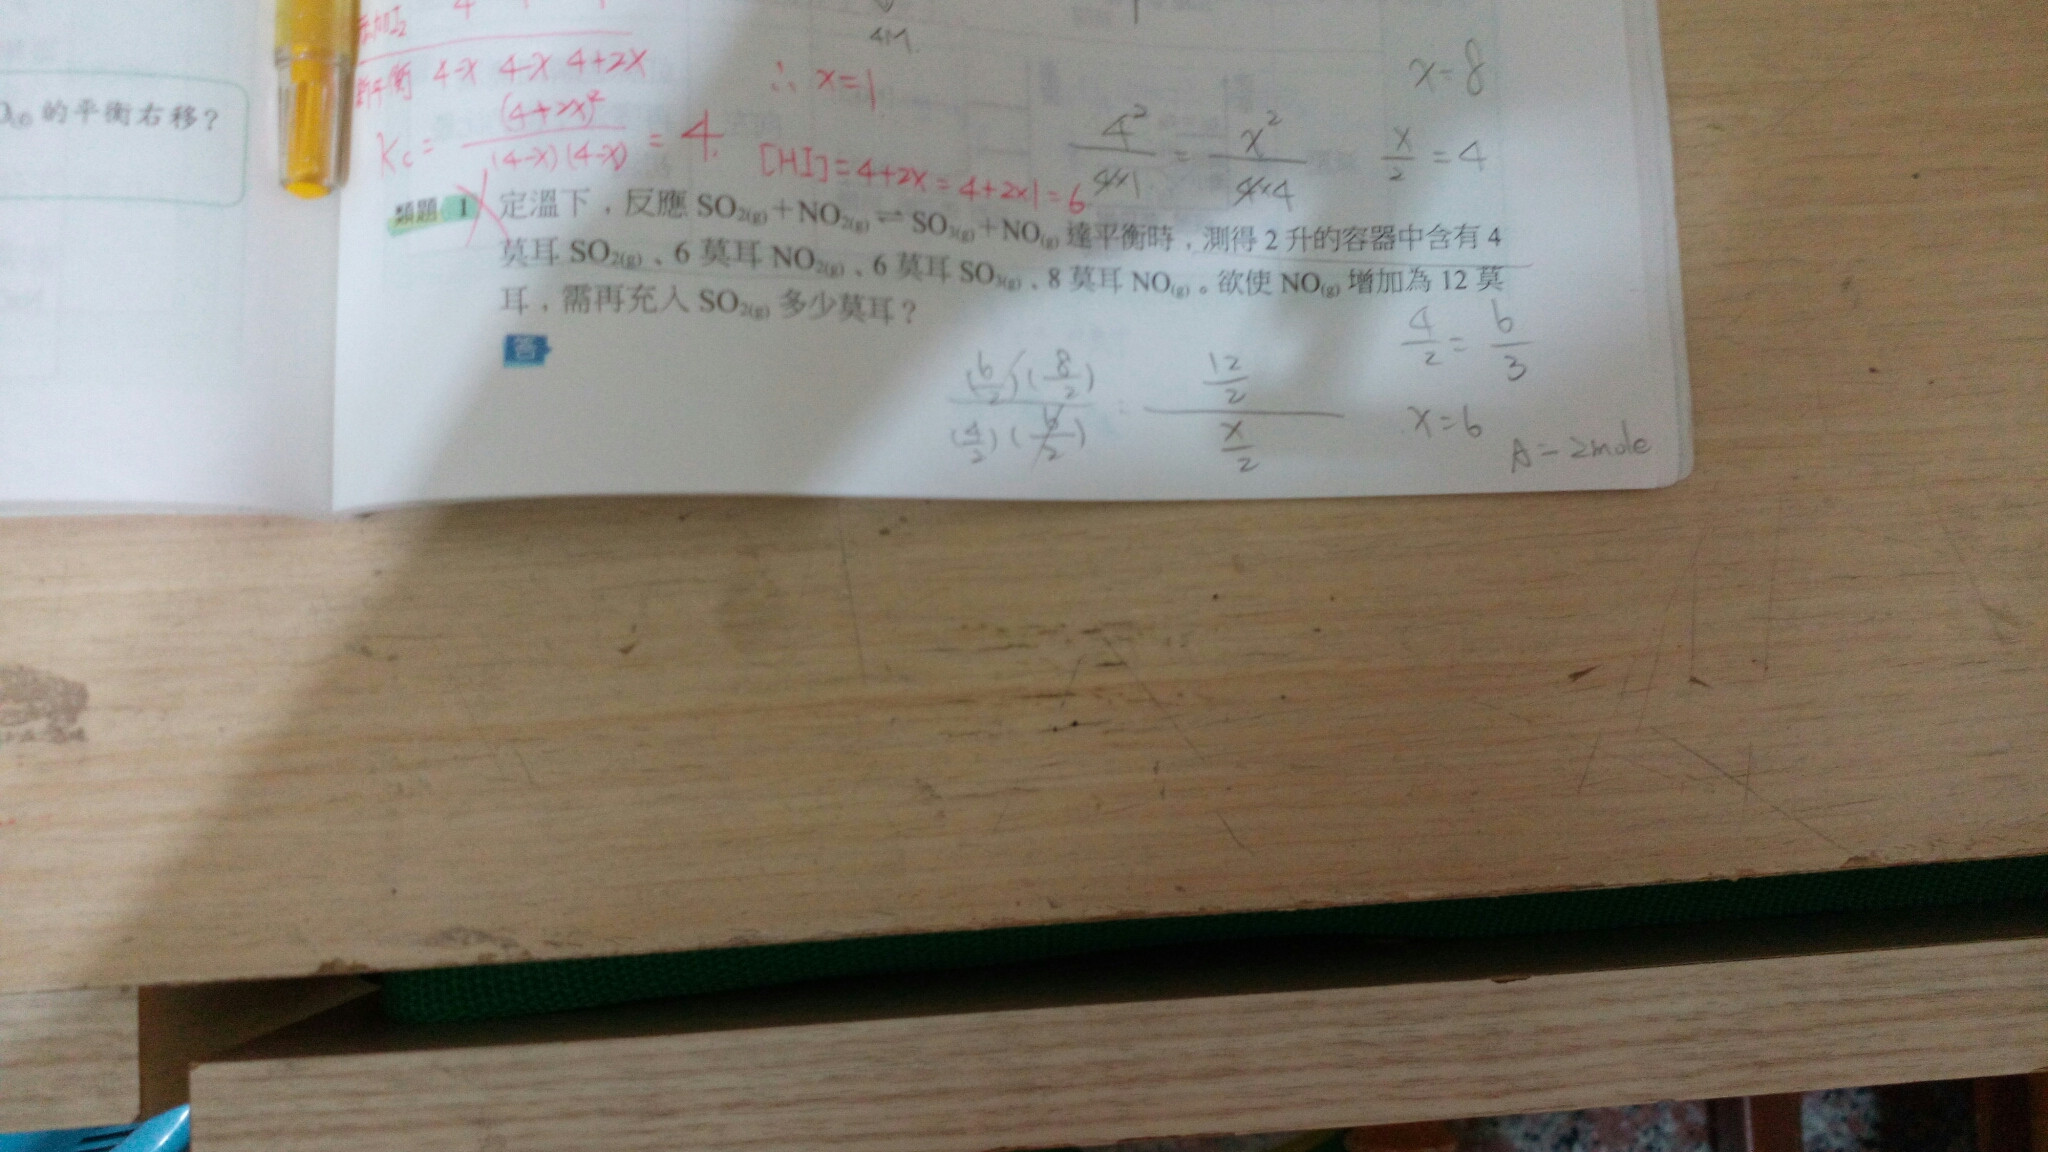 4-x 4-x 4+2x
∴ x=1
x=8
的平衡右移?
Kc = (4+2x)² / (4-x)(4-x) = 4.
[HI]=4+2x=4+2x1=6
4² / 4x1 = x² / 4x4
x/2 = 4
類題 1 定溫下,反應 SO₂(g)+NO₂(g)⇌SO₃(g)+NO(g) 達平衡時,測得 2 升的容器中含有 4
莫耳 SO₂(g)、6 莫耳 NO₂(g)、6 莫耳 SO₃(g)、8 莫耳 NO(g)。欲使 NO(g) 增加為 12 莫
耳,需再充入 SO₂(g) 多少莫耳?
答
(6/2)(8/2) / (4/2)(6/2) = 12/2 / x/2
4/2 = 6/3
x=6
A=2mole